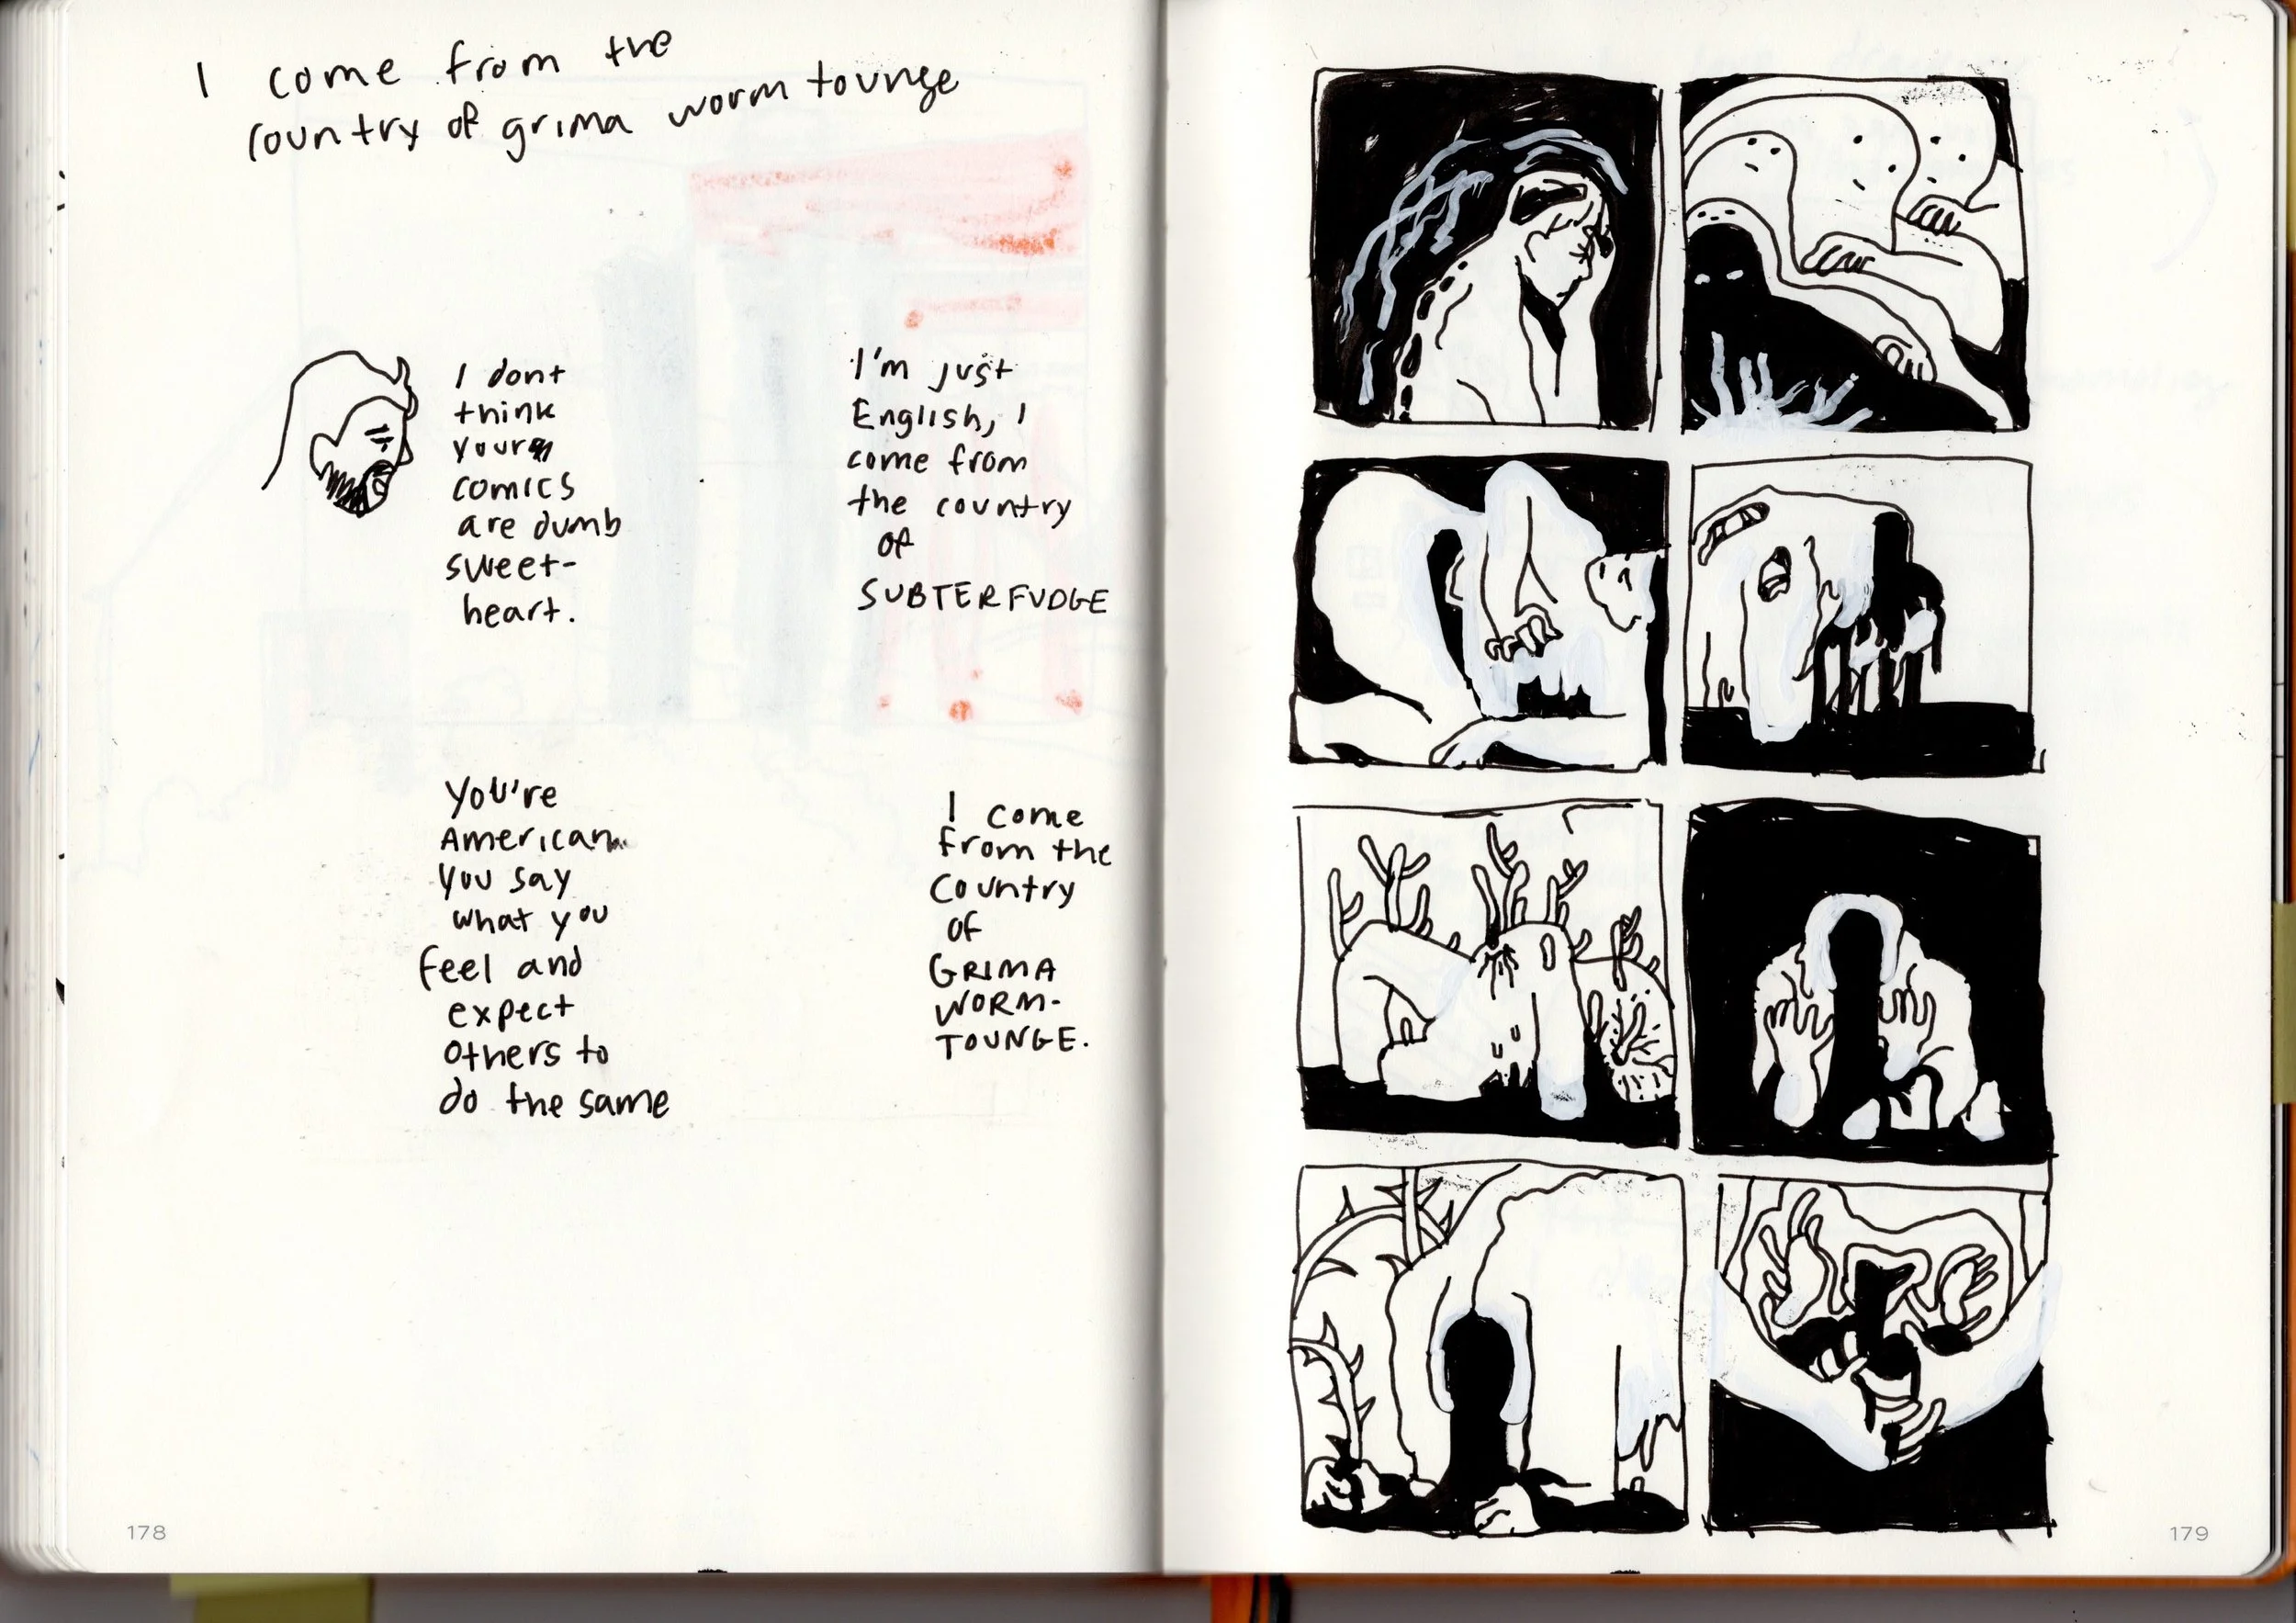 I come from the
country of grima worm tounge
I dont
think
your
comics
are dumb
sweet-
heart.
I'm just
English, I
come from
the country
of
SUBTERFUDGE
You're
American
you say
what you
feel and
expect
others to
do the same
I come
from the
country
of
GRIMA
WORM-
TOUNGE.
178
179